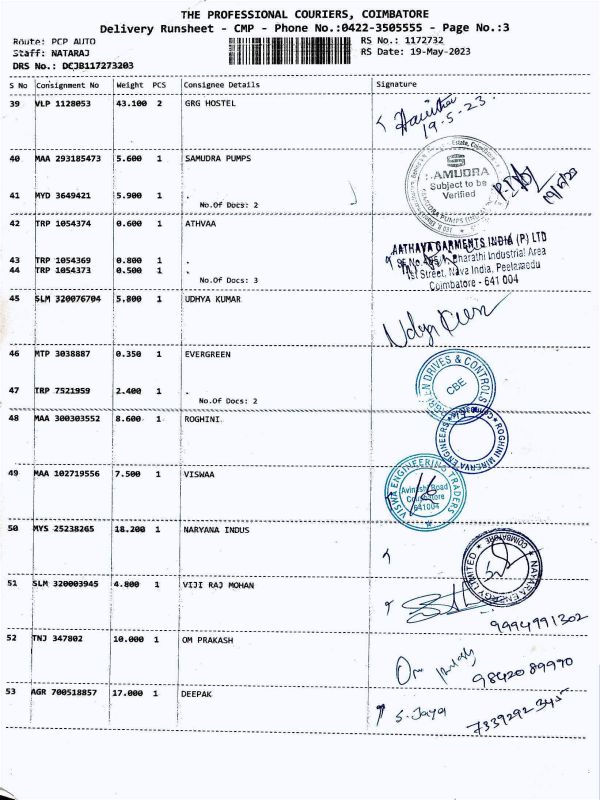 THE PROFESSIONAL COURIERS, COIMBATORE
Delivery Runsheet - CMP - Phone No.:0422-3505555 - Page No.:3
Route: PCP AUTO
RS No.: 1172732
Staff: NATARAJ
RS Date: 19-May-2023
DRS No.: DCJB117273203
S No Consignment No Weight PCS Consignee Details Signature
39 VLP 1128053 43.100 2 GRG HOSTEL
19-5-23
40 MAA 293185473 5.600 1 SAMUDRA PUMPS
SAMUDRA
Subject to be
Verified
41 MYD 3649421 5.900 1 .
No.Of Docs: 2
42 TRP 1054374 0.600 1 ATHVAA
AATHAVA GARMENTS INDIA (P) LTD
43 TRP 1054369 0.800 1 .
Bharathi Industrial Area
44 TRP 1054373 0.500 1 .
1st Street, Nava India, Peelamedu
No.Of Docs: 3
Coimbatore - 641 004
45 SLM 320076704 5.800 1 UDHYA KUMAR
46 MTP 3038887 0.350 1 EVERGREEN
DRIVES & CONTROLS
CBE
47 TRP 7521959 2.400 1 .
No.Of Docs: 2
48 MAA 300303552 8.600 1 ROGHINI
ROGHINI MINERVA ENGINEERS
49 MAA 102719556 7.500 1 VISWAA
VISWA ENGINEERING TRADERS
Avinashi Road
Coimbatore
641004
50 MYS 25238265 18.200 1 NARYANA INDUS
NAYARA ENERGY LIMITED
COIMBATORE
51 SLM 320003945 4.800 1 VIJI RAJ MOHAN
9994991302
52 TNJ 347802 10.000 1 OM PRAKASH
Om
9842089990
53 AGR 700518857 17.000 1 DEEPAK
S. Jaya
7339292345